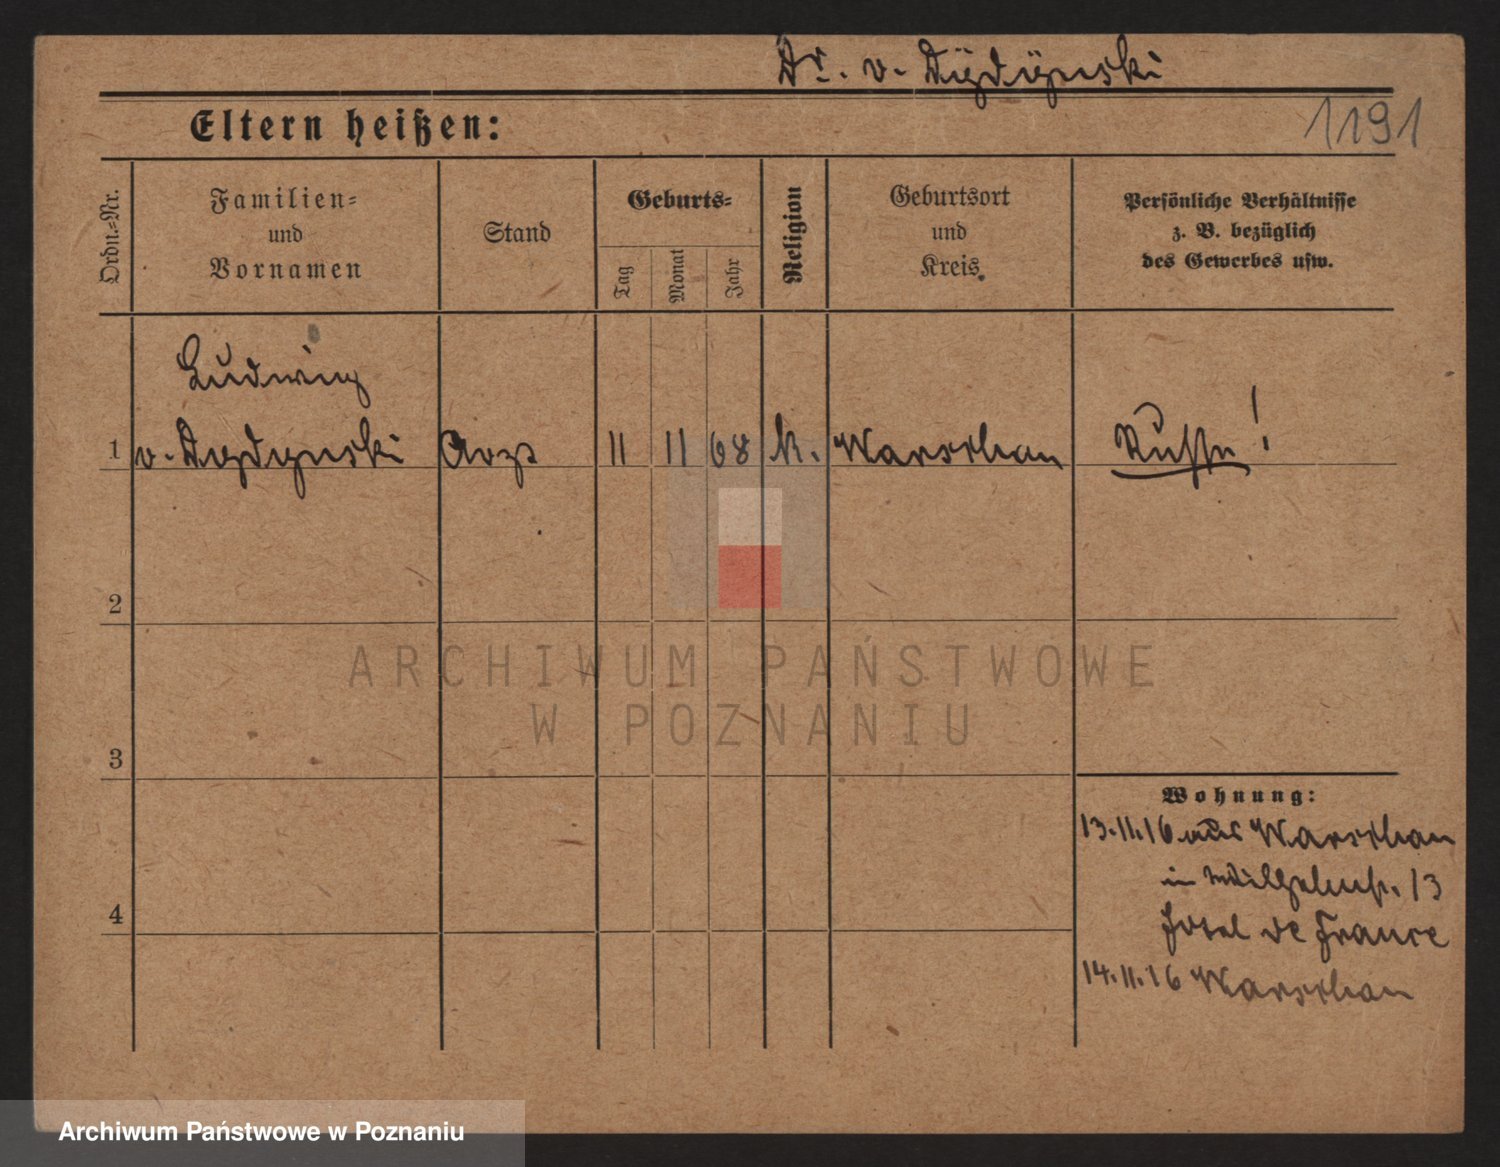 Dr. v. Dÿdÿnski
1191
Eltern heißen:
Ordn.-Nr.
Familien-
und
Vornamen
Stand
Geburts-
Tag
Monat
Jahr
Religion
Geburtsort
und
Kreis
Persönliche Verhältnisse
z. B. bezüglich
des Gewerbes usw.
Ludwig
1 v. Dydynski Arzt 11 11 68 K. Warschau Russe!
2
3
4
Wohnung:
13.11.16 aus Warschau
in Wilhelmstr. 13
Hotel de France
14.11.16 Warschau
ARCHIWUM PAŃSTWOWE
W POZNANIU
Archiwum Państwowe w Poznaniu